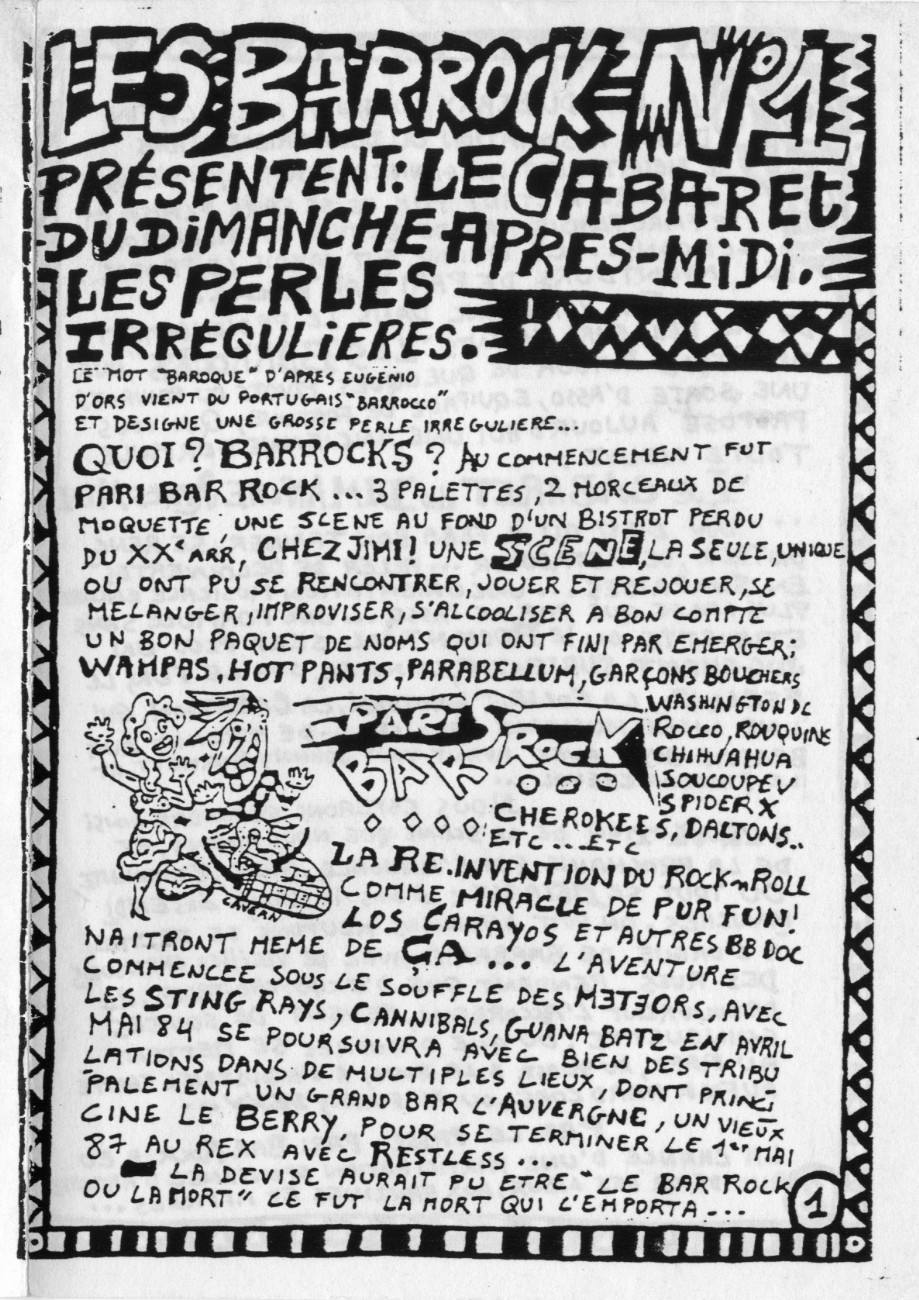 LES BARROCK-N°1
PRÉSENTENT: LE CABARET
DU DiMANCHE APRES-MiDi.
LES PERLES
IRRÉGULiERES.
LE MOT "BAROQUE" D'APRES EUGENIO
D'ORS VIENT DU PORTUGAIS "BARROCCO"
ET DESIGNE UNE GROSSE PERLE IRREGULIERE...
QUOI? BARROCKS? AU COMMENCEMENT FUT
PARI BAR ROCK... 3 PALETTES, 2 MORCEAUX DE
MOQUETTE UNE SCENE AU FOND D'UN BISTROT PERDU
DU XXe ARR, CHEZ JIMI! UNE SCENE, LA SEULE, UNIQUE
OU ONT PU SE RENCONTRER, JOUER ET REJOUER, SE
MELANGER, IMPROVISER, S'ALCOOLISER A BON COMPTE
UN BON PAQUET DE NOMS QUI ONT FINI PAR EMERGER;
WAMPAS, HOT PANTS, PARABELLUM, GARÇONS BOUCHERS
WASHINGTON DC
ROCCO, ROUQUINE
CHIHUAHUA
SOUCOUPE V
SPIDER X
PARIS
BAR ROCK
CHEROKEES, DALTONS..
ETC... ETC
LA RE.INVENTION DU ROCK n ROLL
COMME MIRACLE DE PUR FUN!
LOS CARAYOS ET AUTRES BB DOC
CAVERN
NAITRONT MEME DE ÇA... L'AVENTURE
COMMENCEE SOUS LE SOUFFLE DES METEORS, AVEC
LES STING RAYS, CANNIBALS, GUANA BATZ EN AVRIL
MAI 84 SE POURSUIVRA AVEC BIEN DES TRIBU
LATIONS DANS DE MULTIPLES LIEUX, DONT PRINCI
PALEMENT UN GRAND BAR L'AUVERGNE, UN VIEUX
CINE LE BERRY, POUR SE TERMINER LE 1er MAI
87 AU REX AVEC RESTLESS
LA DEVISE AURAIT PU ETRE "LE BAR ROCK
OU LA MORT" CE FUT LA MORT QUI L'EMPORTA...
1